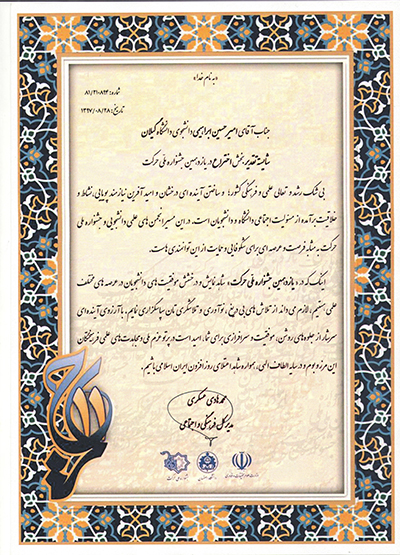 به نام خدا
شماره: ۸۱/۲۱۰۸۹۴
تاریخ: ۱۳۹۷/۰۸/۲۸
جناب آقای امیرحسین ابراهیمی دانشجوی دانشگاه گیلان
شایسته تقدیر بخش اختراع در یازدهمین جشنواره ملی حرکت
بی شک رشد و تعالی علمی و فرهنگی کشورها و ساختن آینده ای درخشان و امید آفرین نیازمند پویایی، نشاط و
خلاقیت برآمده از مسئولیت اجتماعی دانشگاه و دانشجویان است. در این مسیر انجمن های علمی دانشجویی و جشنواره ملی
حرکت به مثابه فرصت و عرصه ای برای شکوفایی و حمایت از این توانمندی هاست.
اینک که در «یازدهمین جشنواره ملی حرکت»، شاهد نمایش و درخشش موفقیت های دانشجویان در عرصه های مختلف
علمی هستیم، لازم می داند از تلاش های بی دریغ، نوآوری و تلاشگری تان سپاسگزاری نمایم. با آرزوی آینده ای
سرشار از جلوه های روشن، موفقیت و سرافرازی برای شما، امید است در پرتو عزم ملی و مجاهدت های علمی فرهیختگان
این مرز و بوم و در سایه الطاف الهی، همواره شاهد اعتلای روزافزون ایران اسلامی باشیم.
محمدهادی عسکری
مدیرکل فرهنگی و اجتماعی